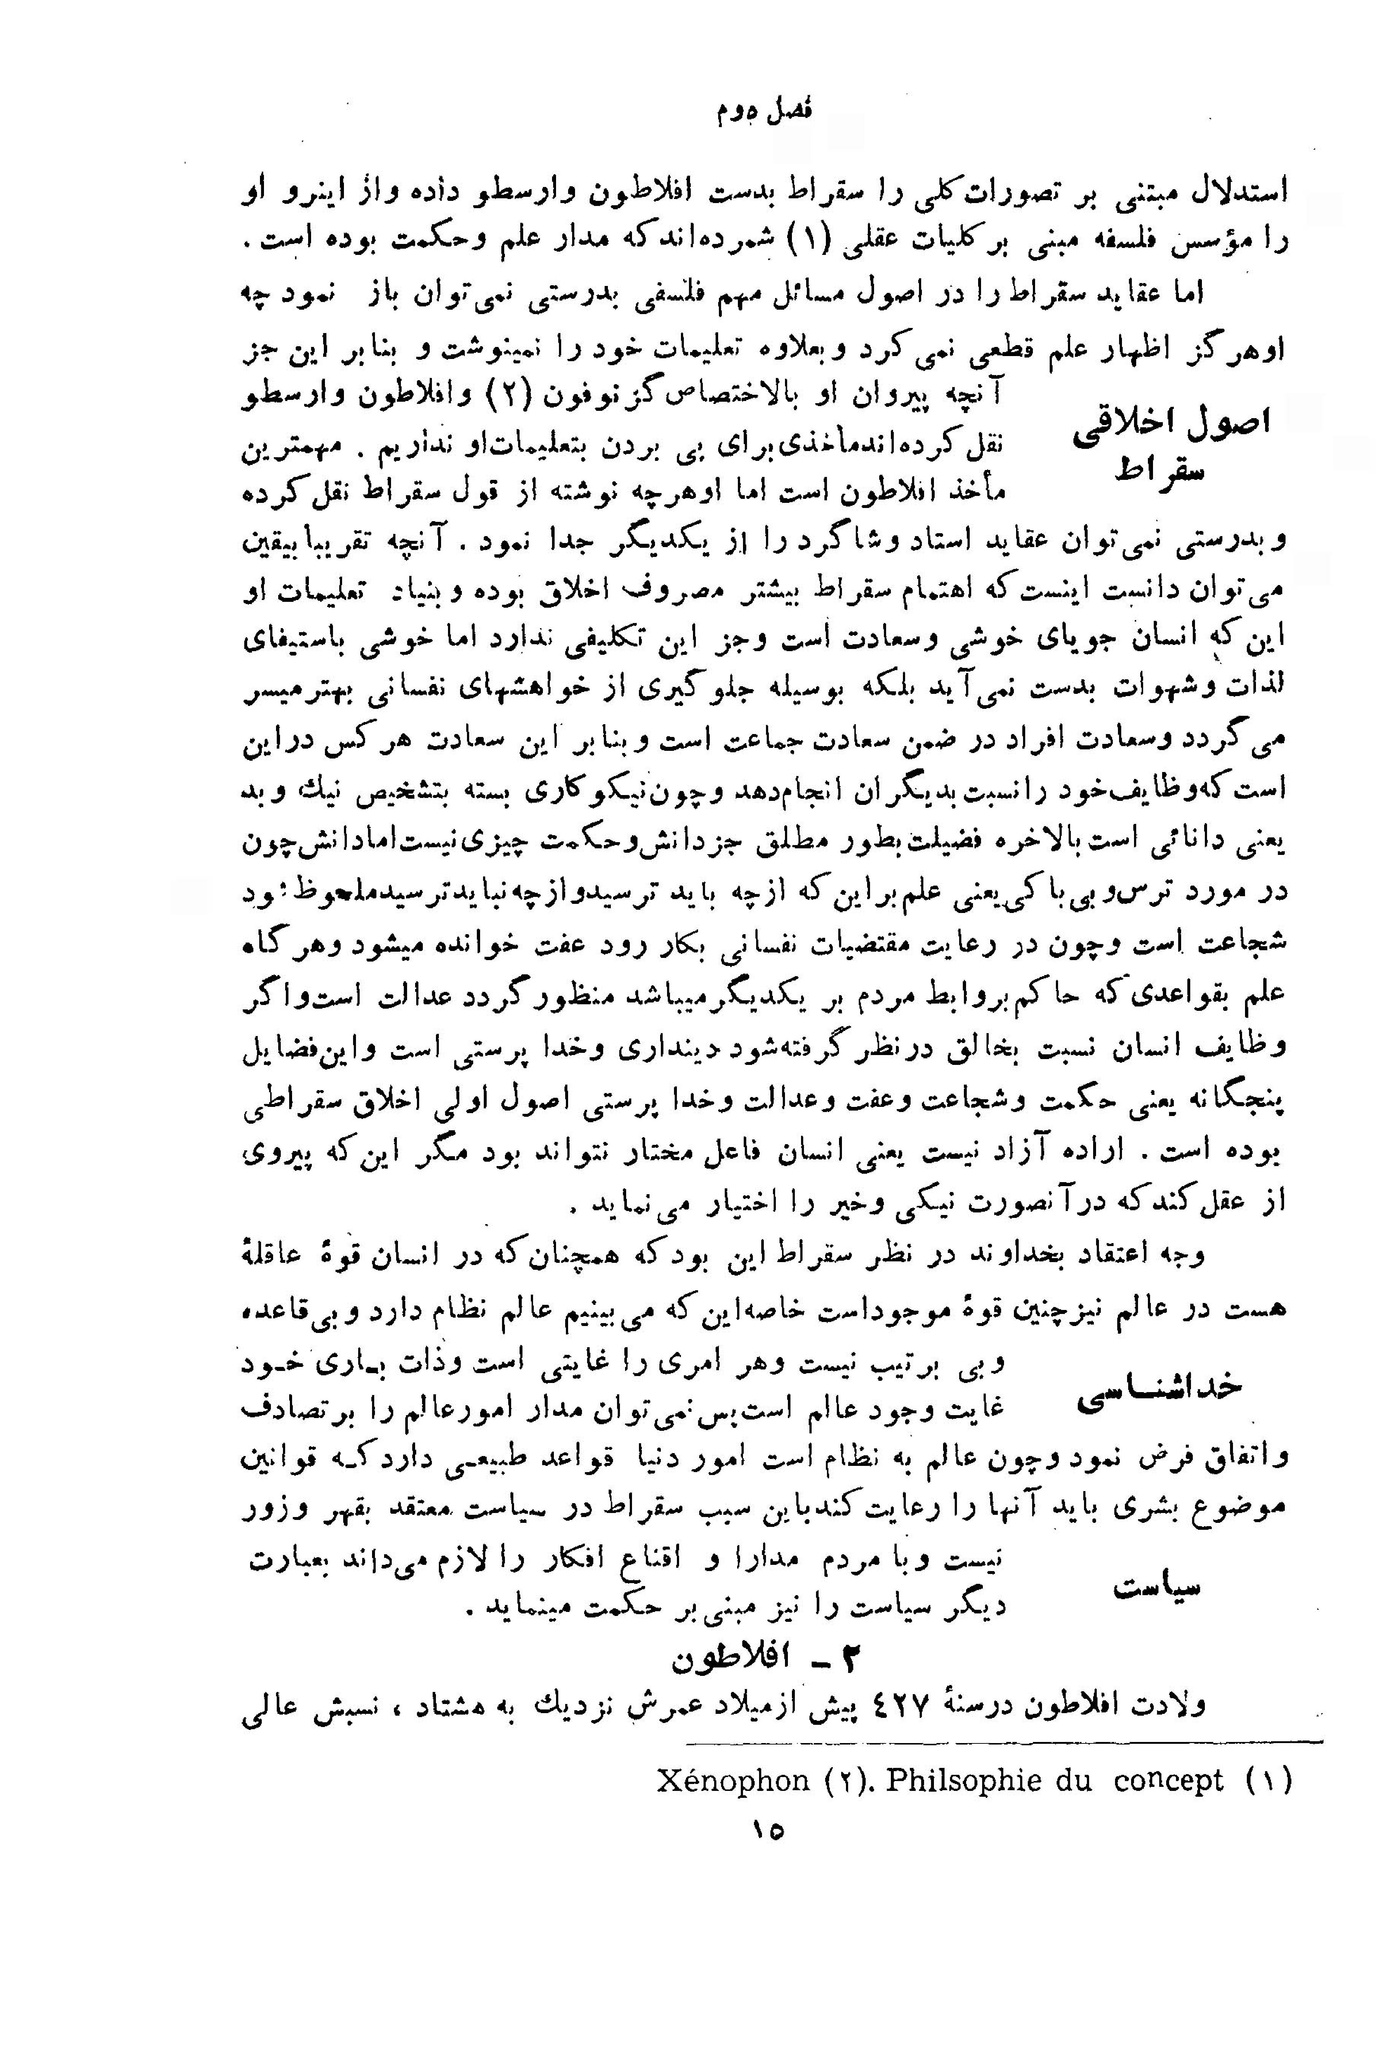 فصل دوم
استدلال مبتنی بر تصورات کلی را سقراط بدست افلاطون وارسطو داده واز اینرو او
را مؤسس فلسفه مبنی بر کلیات عقلی (۱) شمرده‌اند که مدار علم وحکمت بوده است .
اما عقاید سقراط را در اصول مسائل مهم فلسفی بدرستی نمی‌توان باز نمود چه
اوهرگز اظهار علم قطعی نمی‌کرد و بعلاوه تعلیمات خود را نمینوشت و بنابر این جز
اصول اخلاقی
سقراط
آنچه پیروان او بالاختصاص گزنوفون (۲) وافلاطون وارسطو
نقل کرده‌اند مأخذی برای پی بردن بتعلیمات او نداریم . مهمترین
مأخذ افلاطون است اما اوهرچه نوشته از قول سقراط نقل کرده
وبدرستی نمی‌توان عقاید استاد وشاگرد را از یکدیگر جدا نمود . آنچه تقریبا بیقین
می‌توان دانست اینست که اهتمام سقراط بیشتر مصروف اخلاق بوده وبنیاد تعلیمات او
این که انسان جویای خوشی وسعادت است وجز این تکلیفی ندارد اما خوشی باستیفای
لذات وشهوات بدست نمی‌آید بلکه بوسیله جلوگیری از خواهشهای نفسانی بهتر میسر
می‌گردد وسعادت افراد در ضمن سعادت جماعت است وبنابر این سعادت هرکس دراین
است که وظایف خود را نسبت بدیگران انجام‌دهد وچون نیکوکاری بسته بتشخیص نیك وبد
یعنی دانائی است بالاخره فضیلت بطور مطلق جز دانش وحکمت چیزی نیست اما دانش چون
در مورد ترس وبی‌باکی یعنی علم براین که ازچه باید ترسید وازچه نباید ترسید ملحوظ شود
شجاعت است وچون در رعایت مقتضیات نفسانی بکار رود عفت خوانده میشود وهرگاه
علم بقواعدی که حاکم بروابط مردم بر یکدیگر میباشد منظور گردد عدالت است واگر
وظایف انسان نسبت بخالق در نظر گرفته شود دینداری وخدا پرستی است واین فضایل
پنجگانه یعنی حکمت وشجاعت وعفت وعدالت وخدا پرستی اصول اولی اخلاق سقراطی
بوده است . اراده آزاد نیست یعنی انسان فاعل مختار نتواند بود مگر این که پیروی
از عقل کند که درآنصورت نیکی وخیر را اختیار می‌نماید .
وجه اعتقاد بخداوند در نظر سقراط این بود که همچنان که در انسان قوهٔ عاقلهٔ
هست در عالم نیز چنین قوهٔ موجود است خاصه این که می‌بینیم عالم نظام دارد وبی‌قاعده
خداشناسی
وبی برتیب نیست وهر امری را غایتی است وذات باری خود
غایت وجود عالم است پس نمی‌توان مدار امور عالم را بر تصادف
واتفاق فرض نمود وچون عالم به نظام است امور دنیا قواعد طبیعی دارد که قوانین
موضوع بشری باید آنها را رعایت کند باین سبب سقراط در سیاست معتقد بقهر وزور
سیاست
نیست وبا مردم مدارا و اقناع افکار را لازم می‌داند بعبارت
دیگر سیاست را نیز مبنی بر حکمت مینماید .
۲ - افلاطون
ولادت افلاطون درسنهٔ ٤٢٧ پیش ازمیلاد عمرش نزدیك به هشتاد ، نسبش عالی
(۱) Philsophie du concept .(۲) Xénophon
۱۵